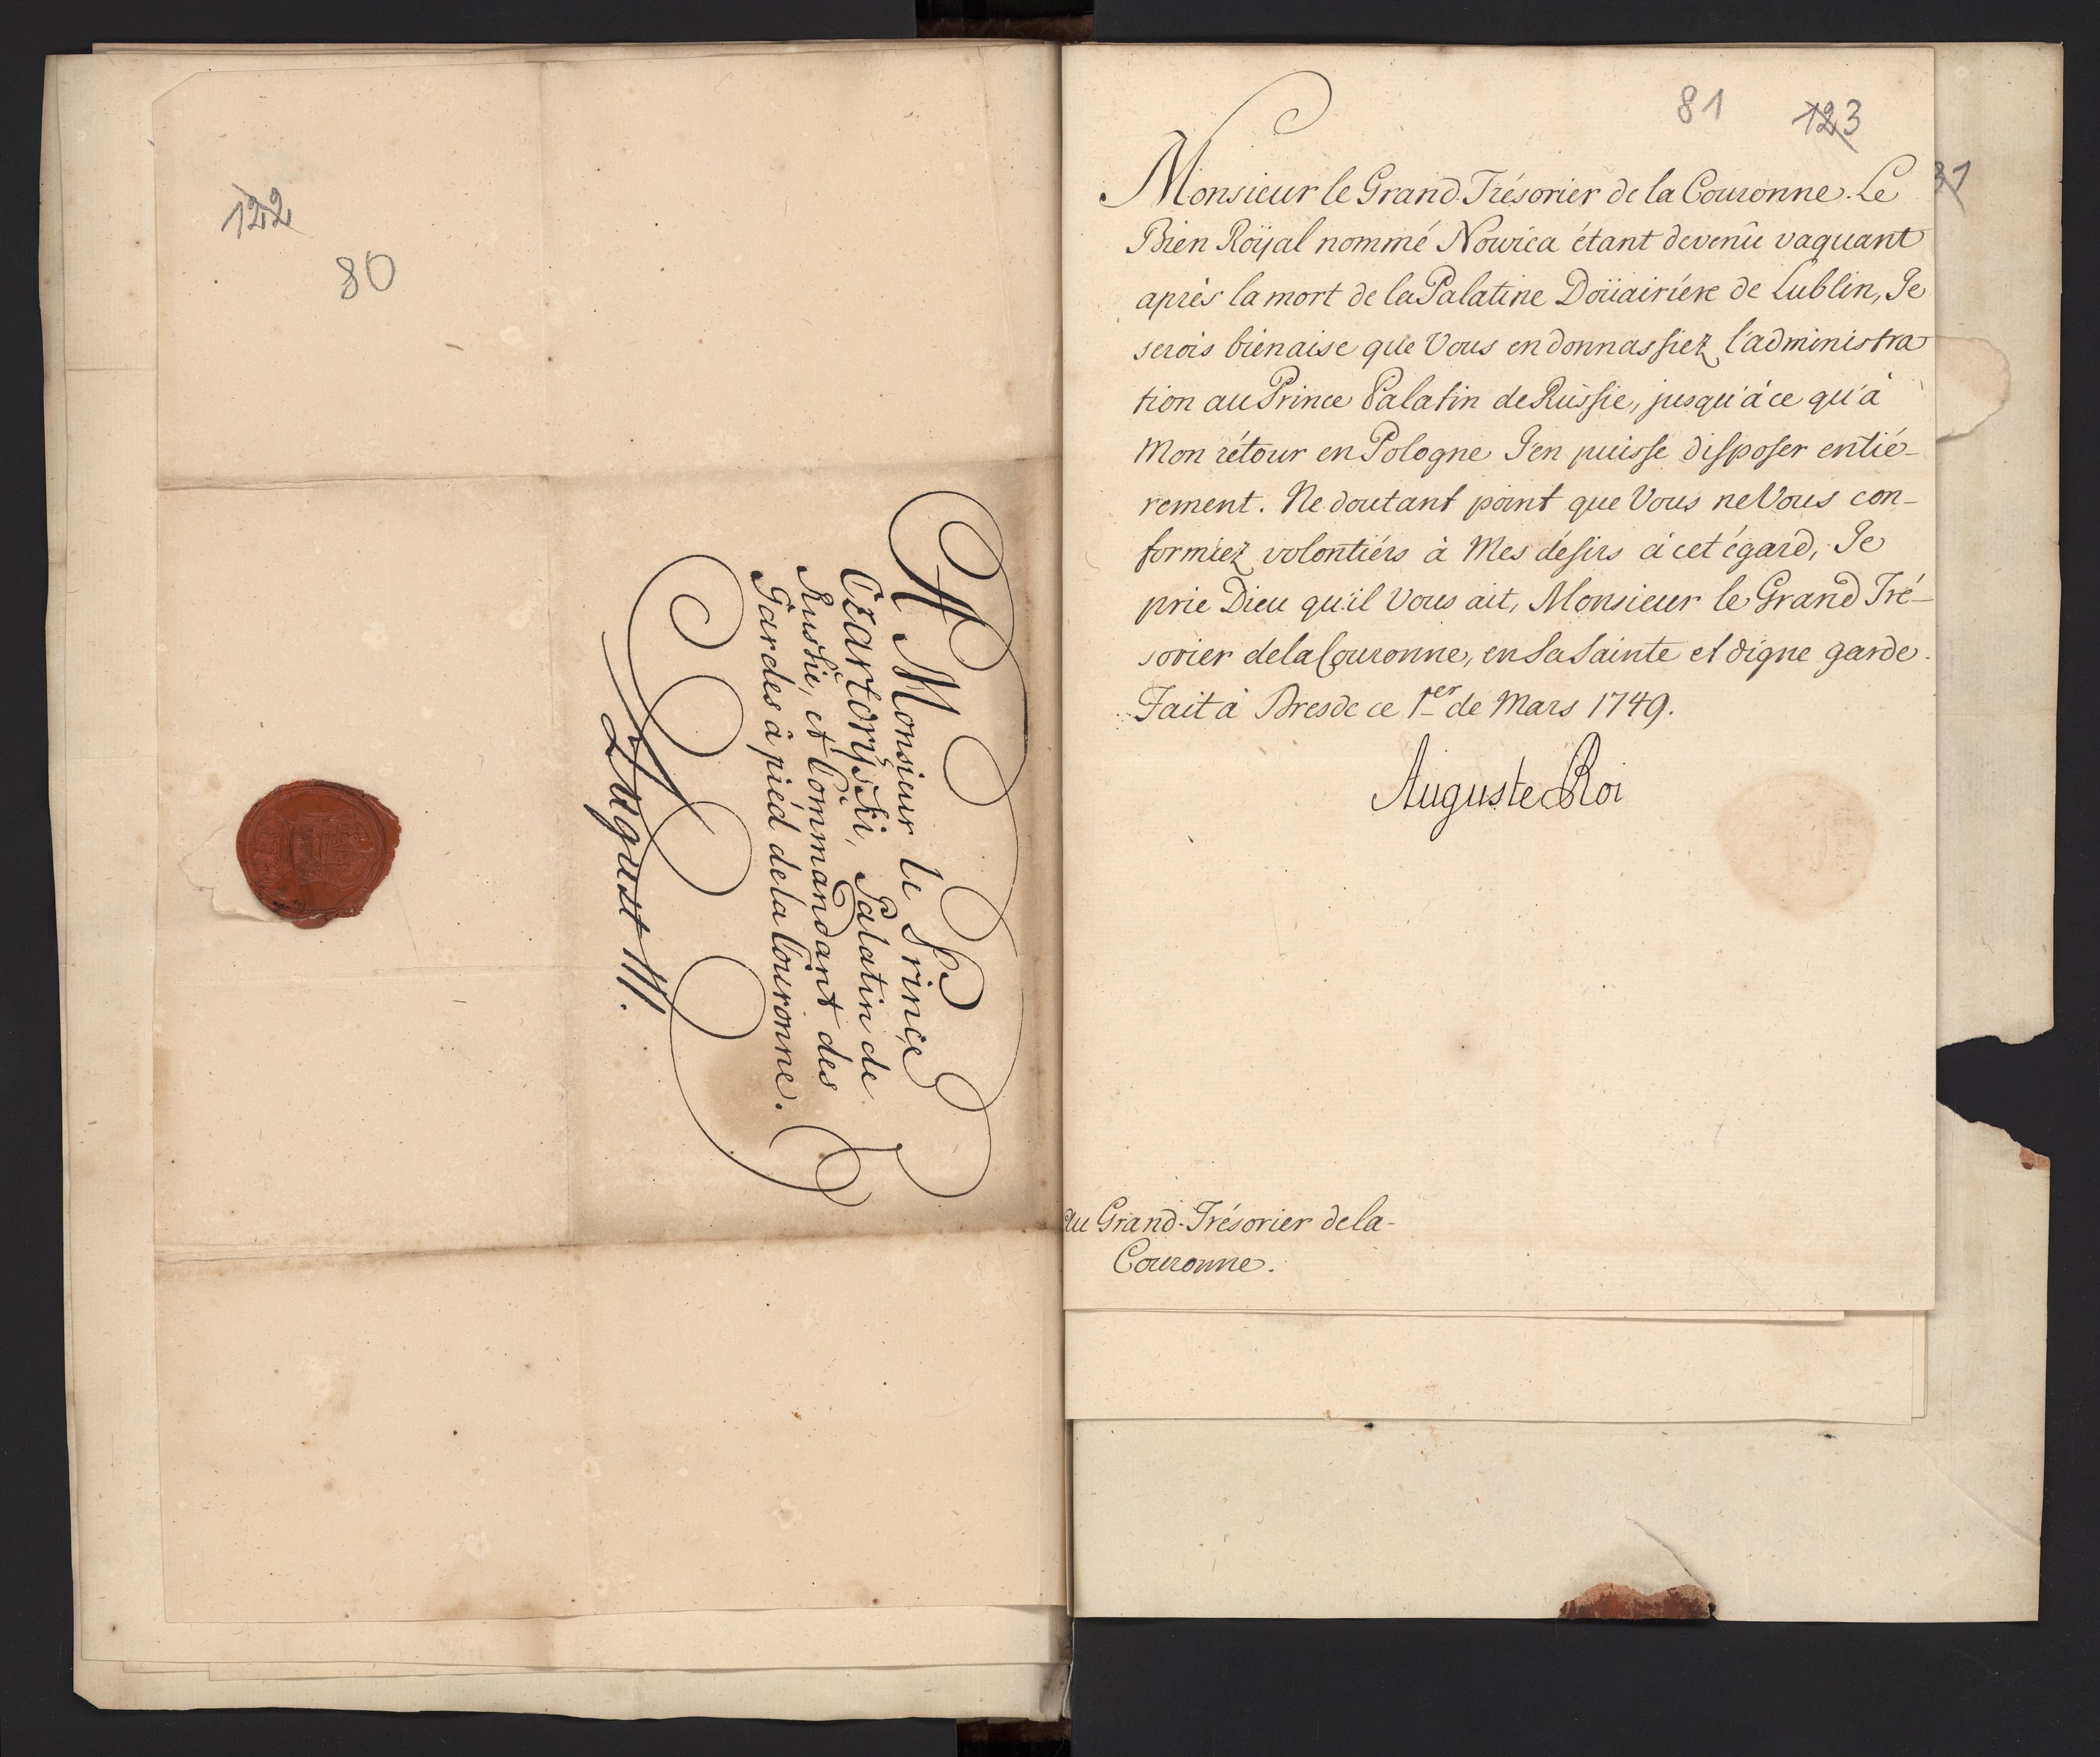 122
80
A Monsieur le Prince
Czartoryski, Palatin de
Russie, et Commandant des
Gardes à pied de la Couronne.
August III.
81 123
31
Monsieur le Grand-Trésorier de la Couronne. Le
Bien Roÿal nommé Nowica étant devenû vaquant
après la mort de la Palatine Doüairiére de Lublin, Je
serois bienaise que Vous en donnassiez l'administra
tion au Prince Palatin de Russie, jusqu'à ce qu'à
Mon rétour en Pologne J'en puisse disposer entié-
rement. Ne doutant point que Vous ne Vous con-
formiez volontiérs à Mes désirs à cet égard, Je
prie Dieu qu'il Vous ait, Monsieur le Grand Tré-
sorier de la Couronne, en Sa Sainte et digne garde.
Fait à Dresde ce 1er de Mars 1749.
Auguste Roi
au Grand-Trésorier de la-
Couronne.